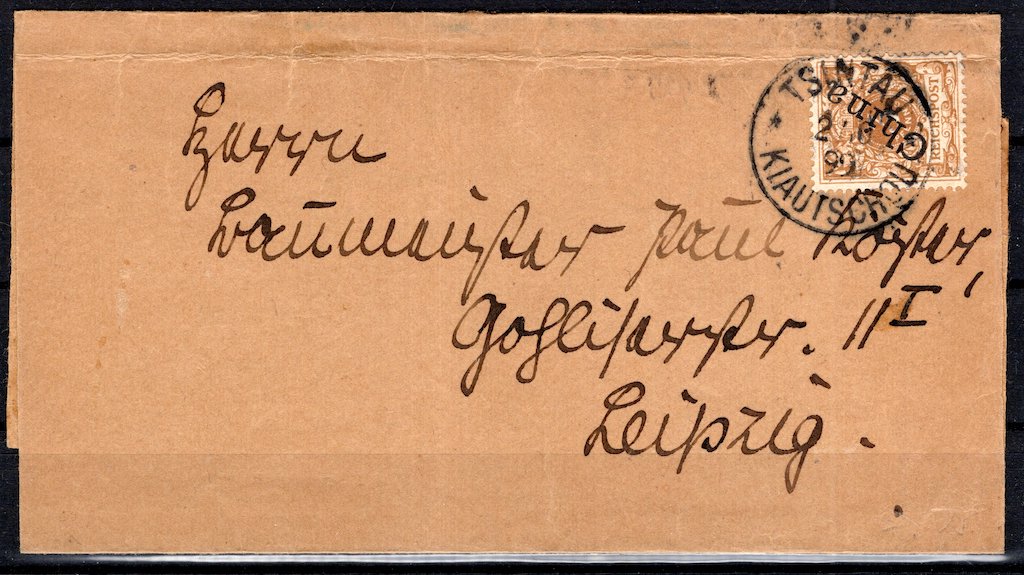 TSINTAU
KIAUTSCHOU
China
REICHSPOST
Herrn
Baumeister Paul Köster,
Gohliserstr. 11 I
Leipzig.